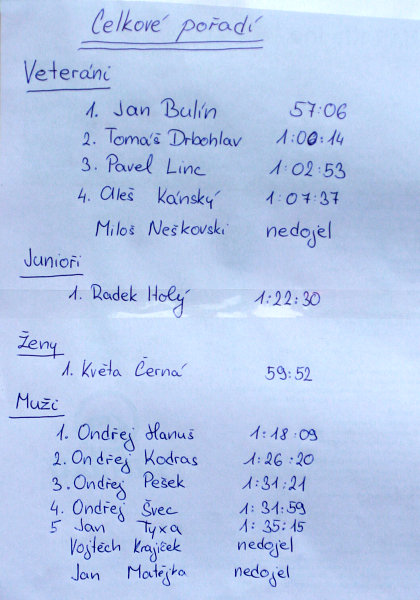 Celkové pořadí
Veteráni
1. Jan Bulín 57:06
2. Tomáš Drbohlav 1:00:14
3. Pavel Linc 1:02:53
4. Aleš Kánský 1:07:37
Miloš Neškovski nedojel
Junioři
1. Radek Holý 1:22:30
Ženy
1. Květa Černá 59:52
Muži
1. Ondřej Hanuš 1:18:09
2. Ondřej Kodras 1:26:20
3. Ondřej Pešek 1:31:21
4. Ondřej Švec 1:31:59
5 Jan Tyxa 1:35:15
Vojtěch Krajíček nedojel
Jan Matějka nedojel